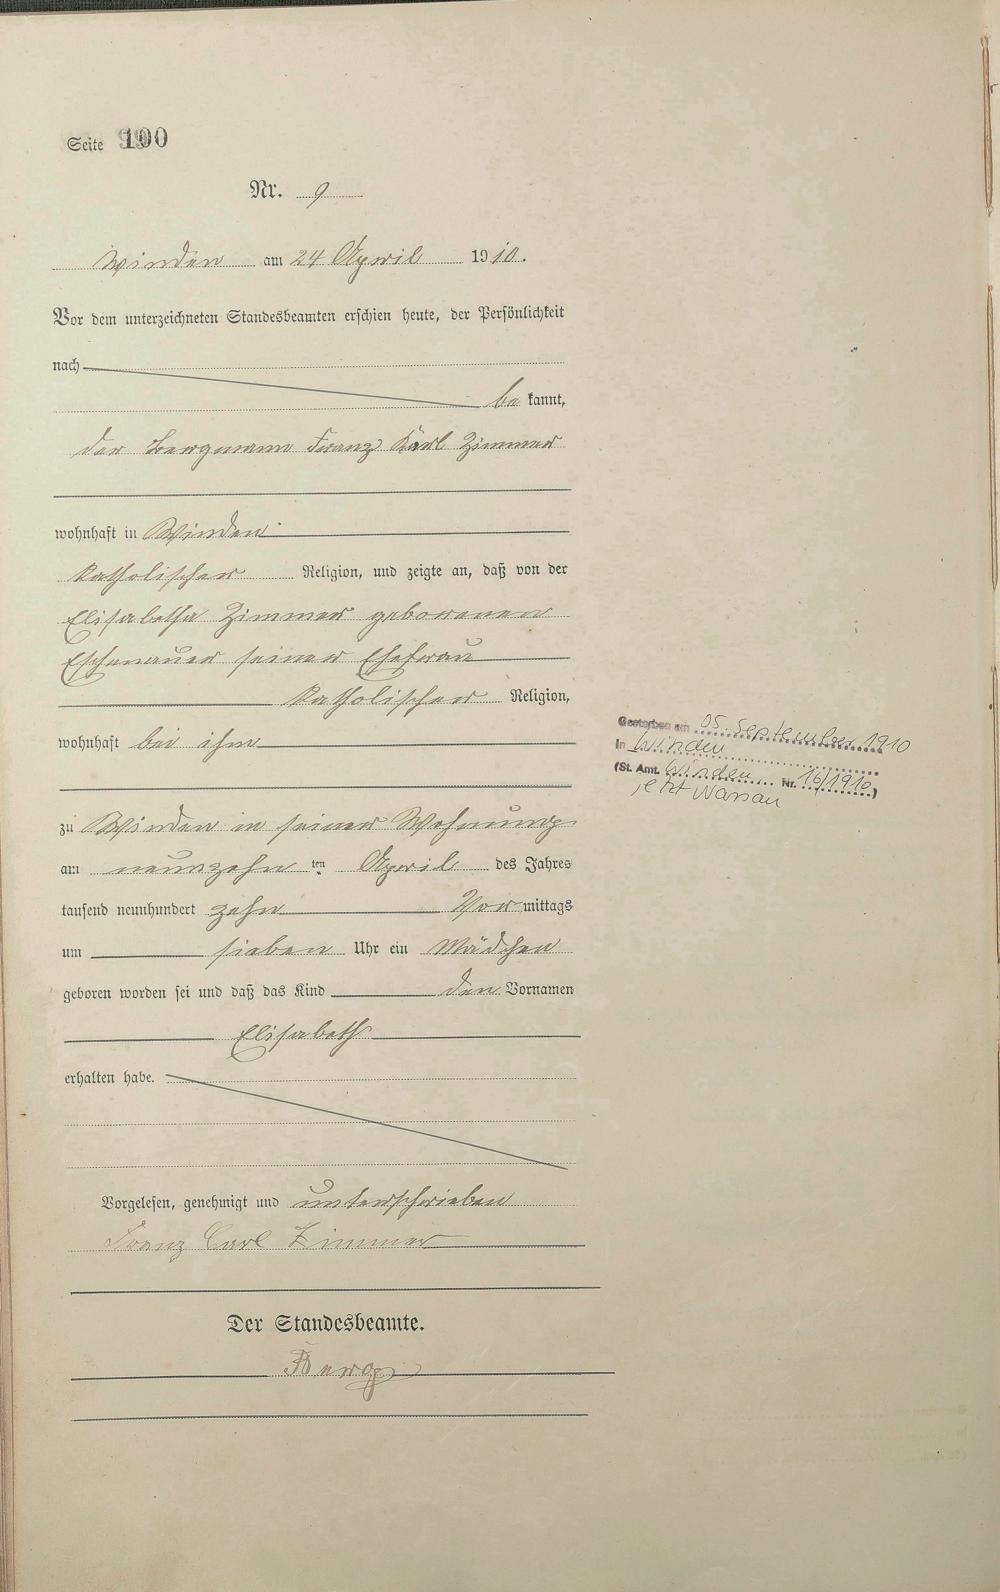 Seite 100
Nr. 9
Winden am 24 April 1910.
Vor dem unterzeichneten Standesbeamten erschien heute, der Persönlichkeit
nach
be kannt,
der Bergmann Franz Karl Zimmer
wohnhaft in Winden
katholischer Religion, und zeigte an, daß von der
Elisabetha Zimmer geborenen
Eschenauer seiner Ehefrau
katholischer Religion,
wohnhaft bei ihm
zu Winden in seiner Wohnung
am neunzehn ten April des Jahres
tausend neunhundert zehn Vor mittags
um sieben Uhr ein Mädchen
geboren worden sei und daß das Kind den Vornamen
Elisabeth
erhalten habe.
Vorgelesen, genehmigt und unterschrieben
Franz Carl Zimmer
Der Standesbeamte.
Gestorben am 05. September 1910
in Winden
(St. Amt. Winden Nr. 16/1910)
jetzt Nassau